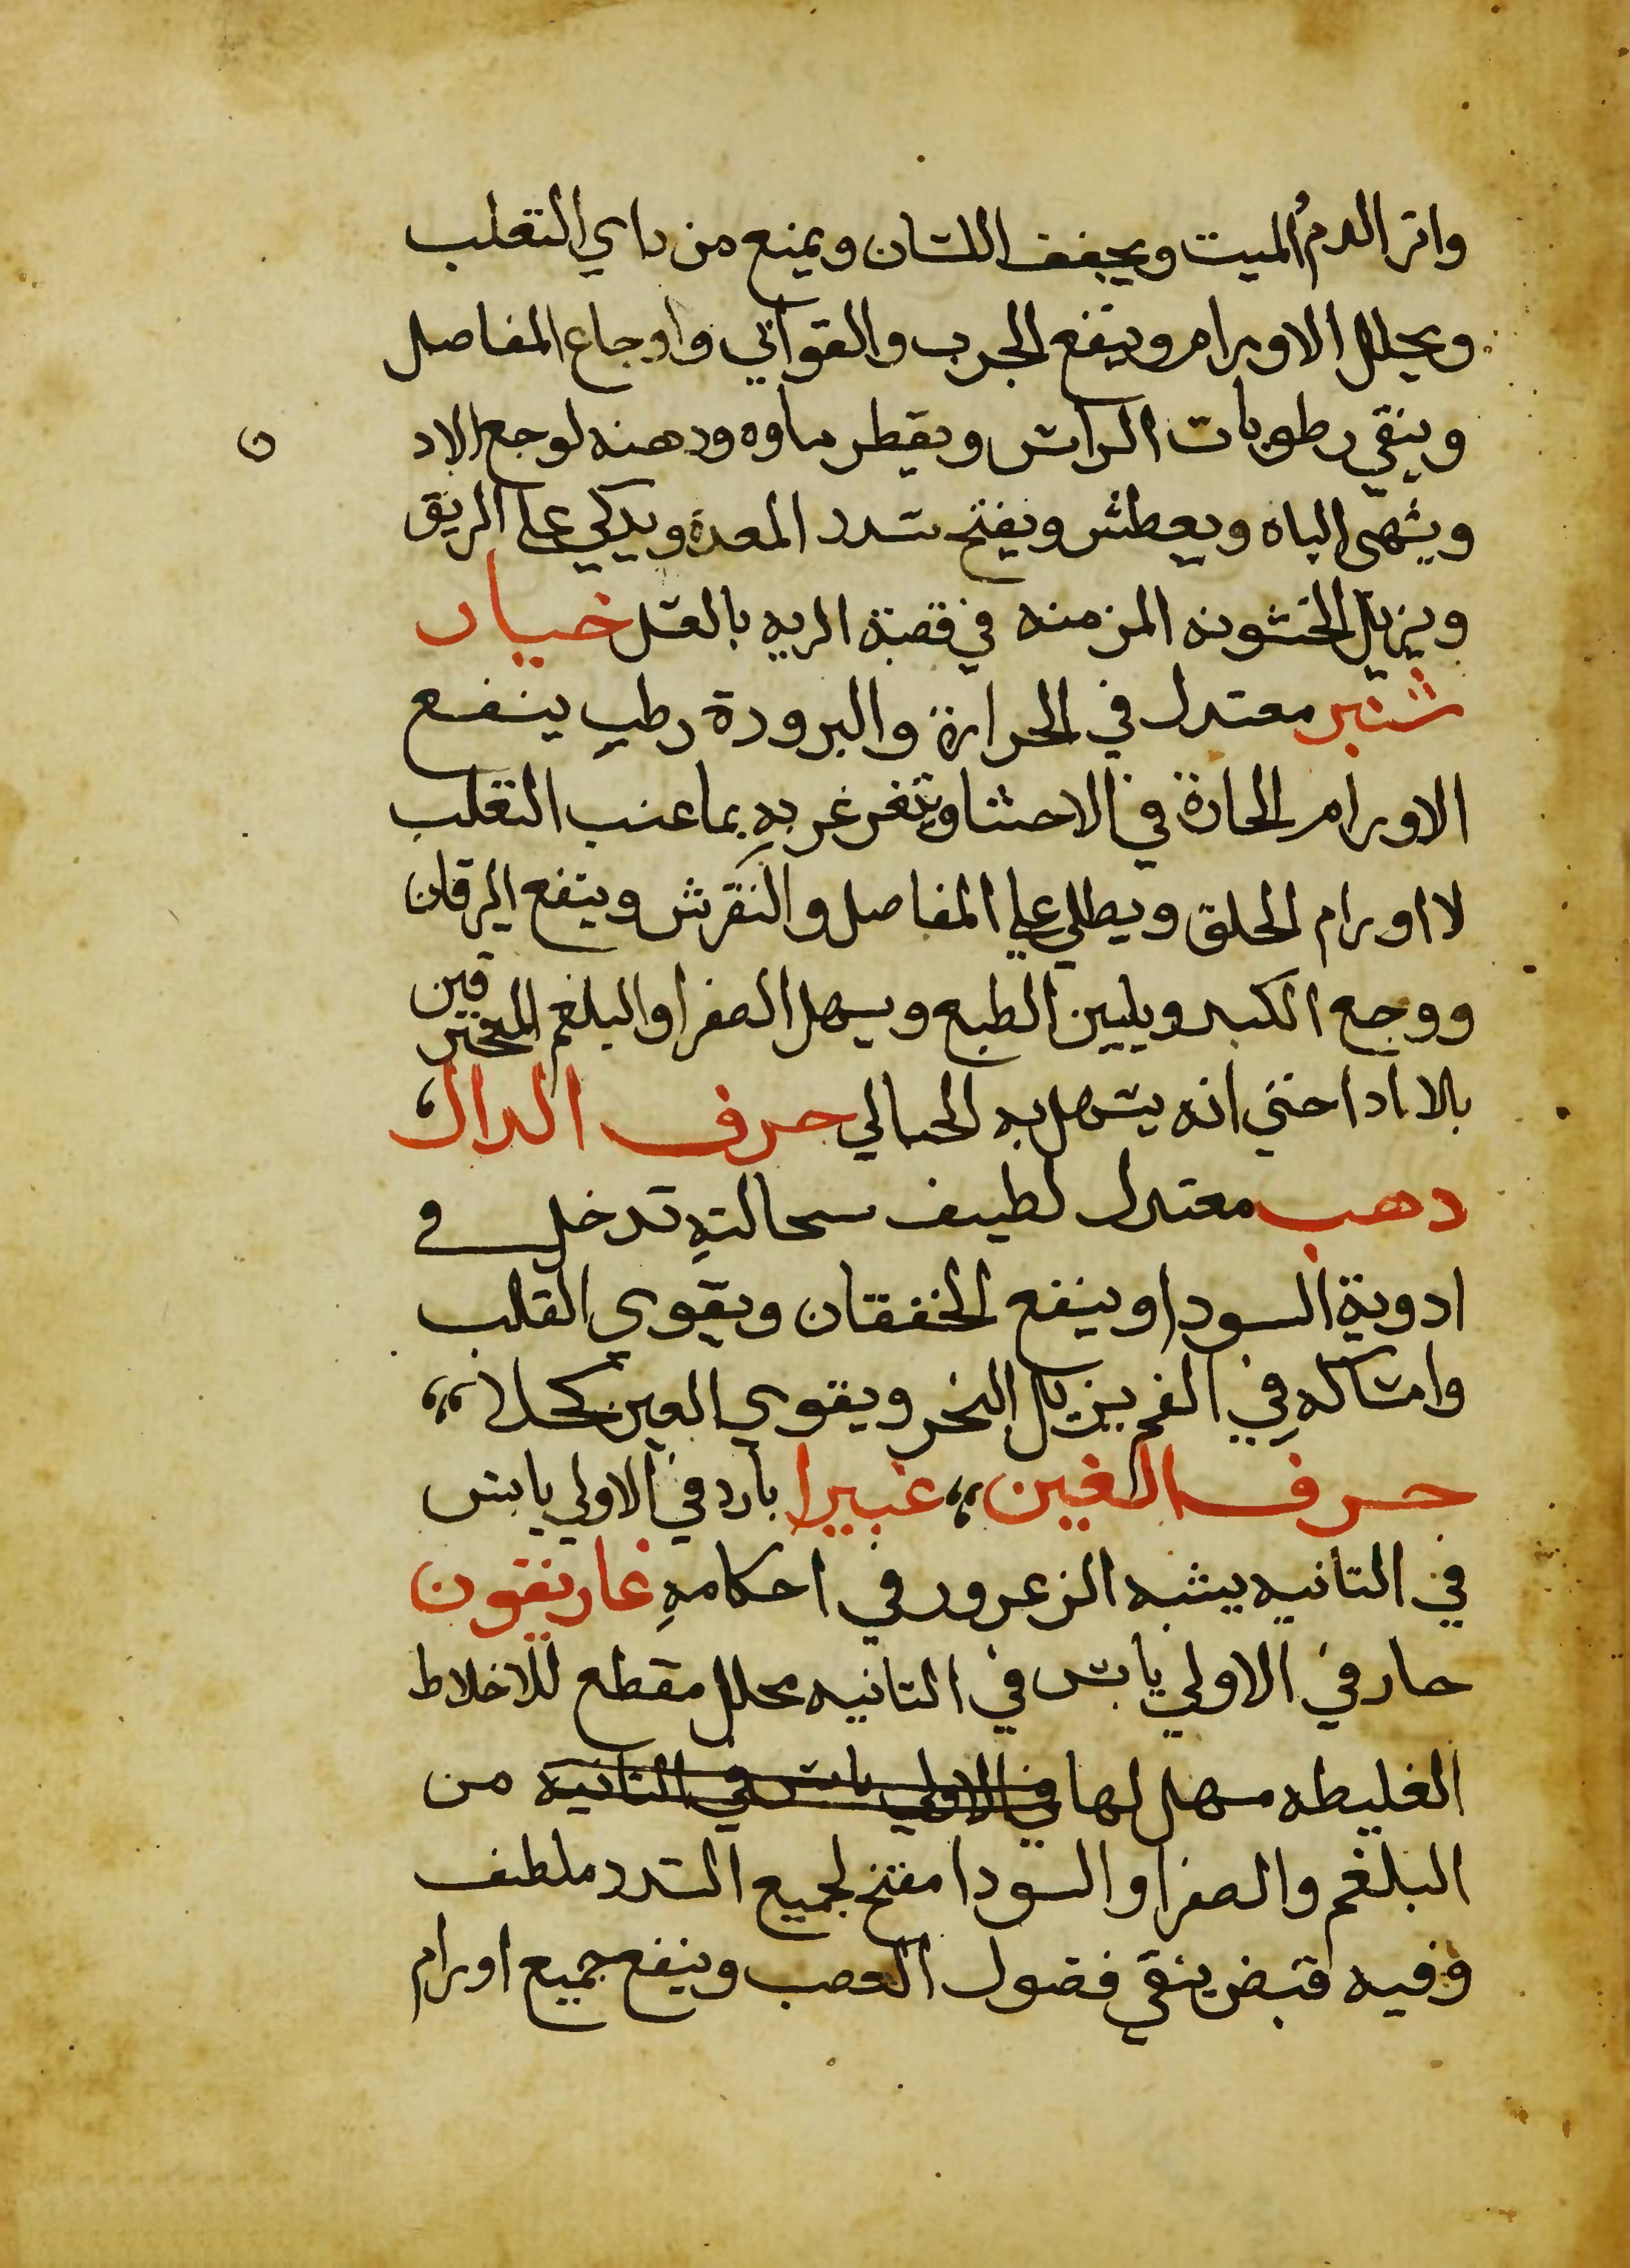 واتر الدم الميت ويجفف اللسان ويمنع من داي التعلب
ويحلل الاورام وينفع الجرب والقوابي واوجاع المفاصل
وينقي رطوبات الراس ويقطر ماوه ودهنه لوجع الاد
ن
ويشهي الباه ويعطش ويفتح سدد المعدة ويدكي علي الريق
ويزيل الخشونه المزمنه في قصبة الريه بالعسل خيار
شنبر معتدل في الحرارة والبرودة رطب ينفع
الاورام الحادة في الاحشا ويتغرغر به بما عنب التعلب
لااورام الحلق ويطلي علي المفاصل والنقرس وينفع اليرقان
ووجع الكبد ويليين الطبع ويسهل الصفرا والبلغم المحترقين
بالا ادا حتي انه يسهل به الحبالي حرف الدال
دهب معتدل لطيف سحالته تدخل في
ادوية السودا وينفع الخفقان ويقوي القلب
وامساكه في الفم يزيل البخر ويقوي العين كحلا
حرف الغين غبيرا بارد في الاولي يابس
في التانيه يشبه الزعرور في احكامه غاريقون
حار في الاولي يابس في التانيه محلل مقطع للاخلاط
الغليطه مسهل لها في الاولي يابس في التانيه من
البلغم والصفرا والسودا مفتح لجميع السدد ملطف
وفيه قبض ينقي فضول العصب وينفع جميع اورام